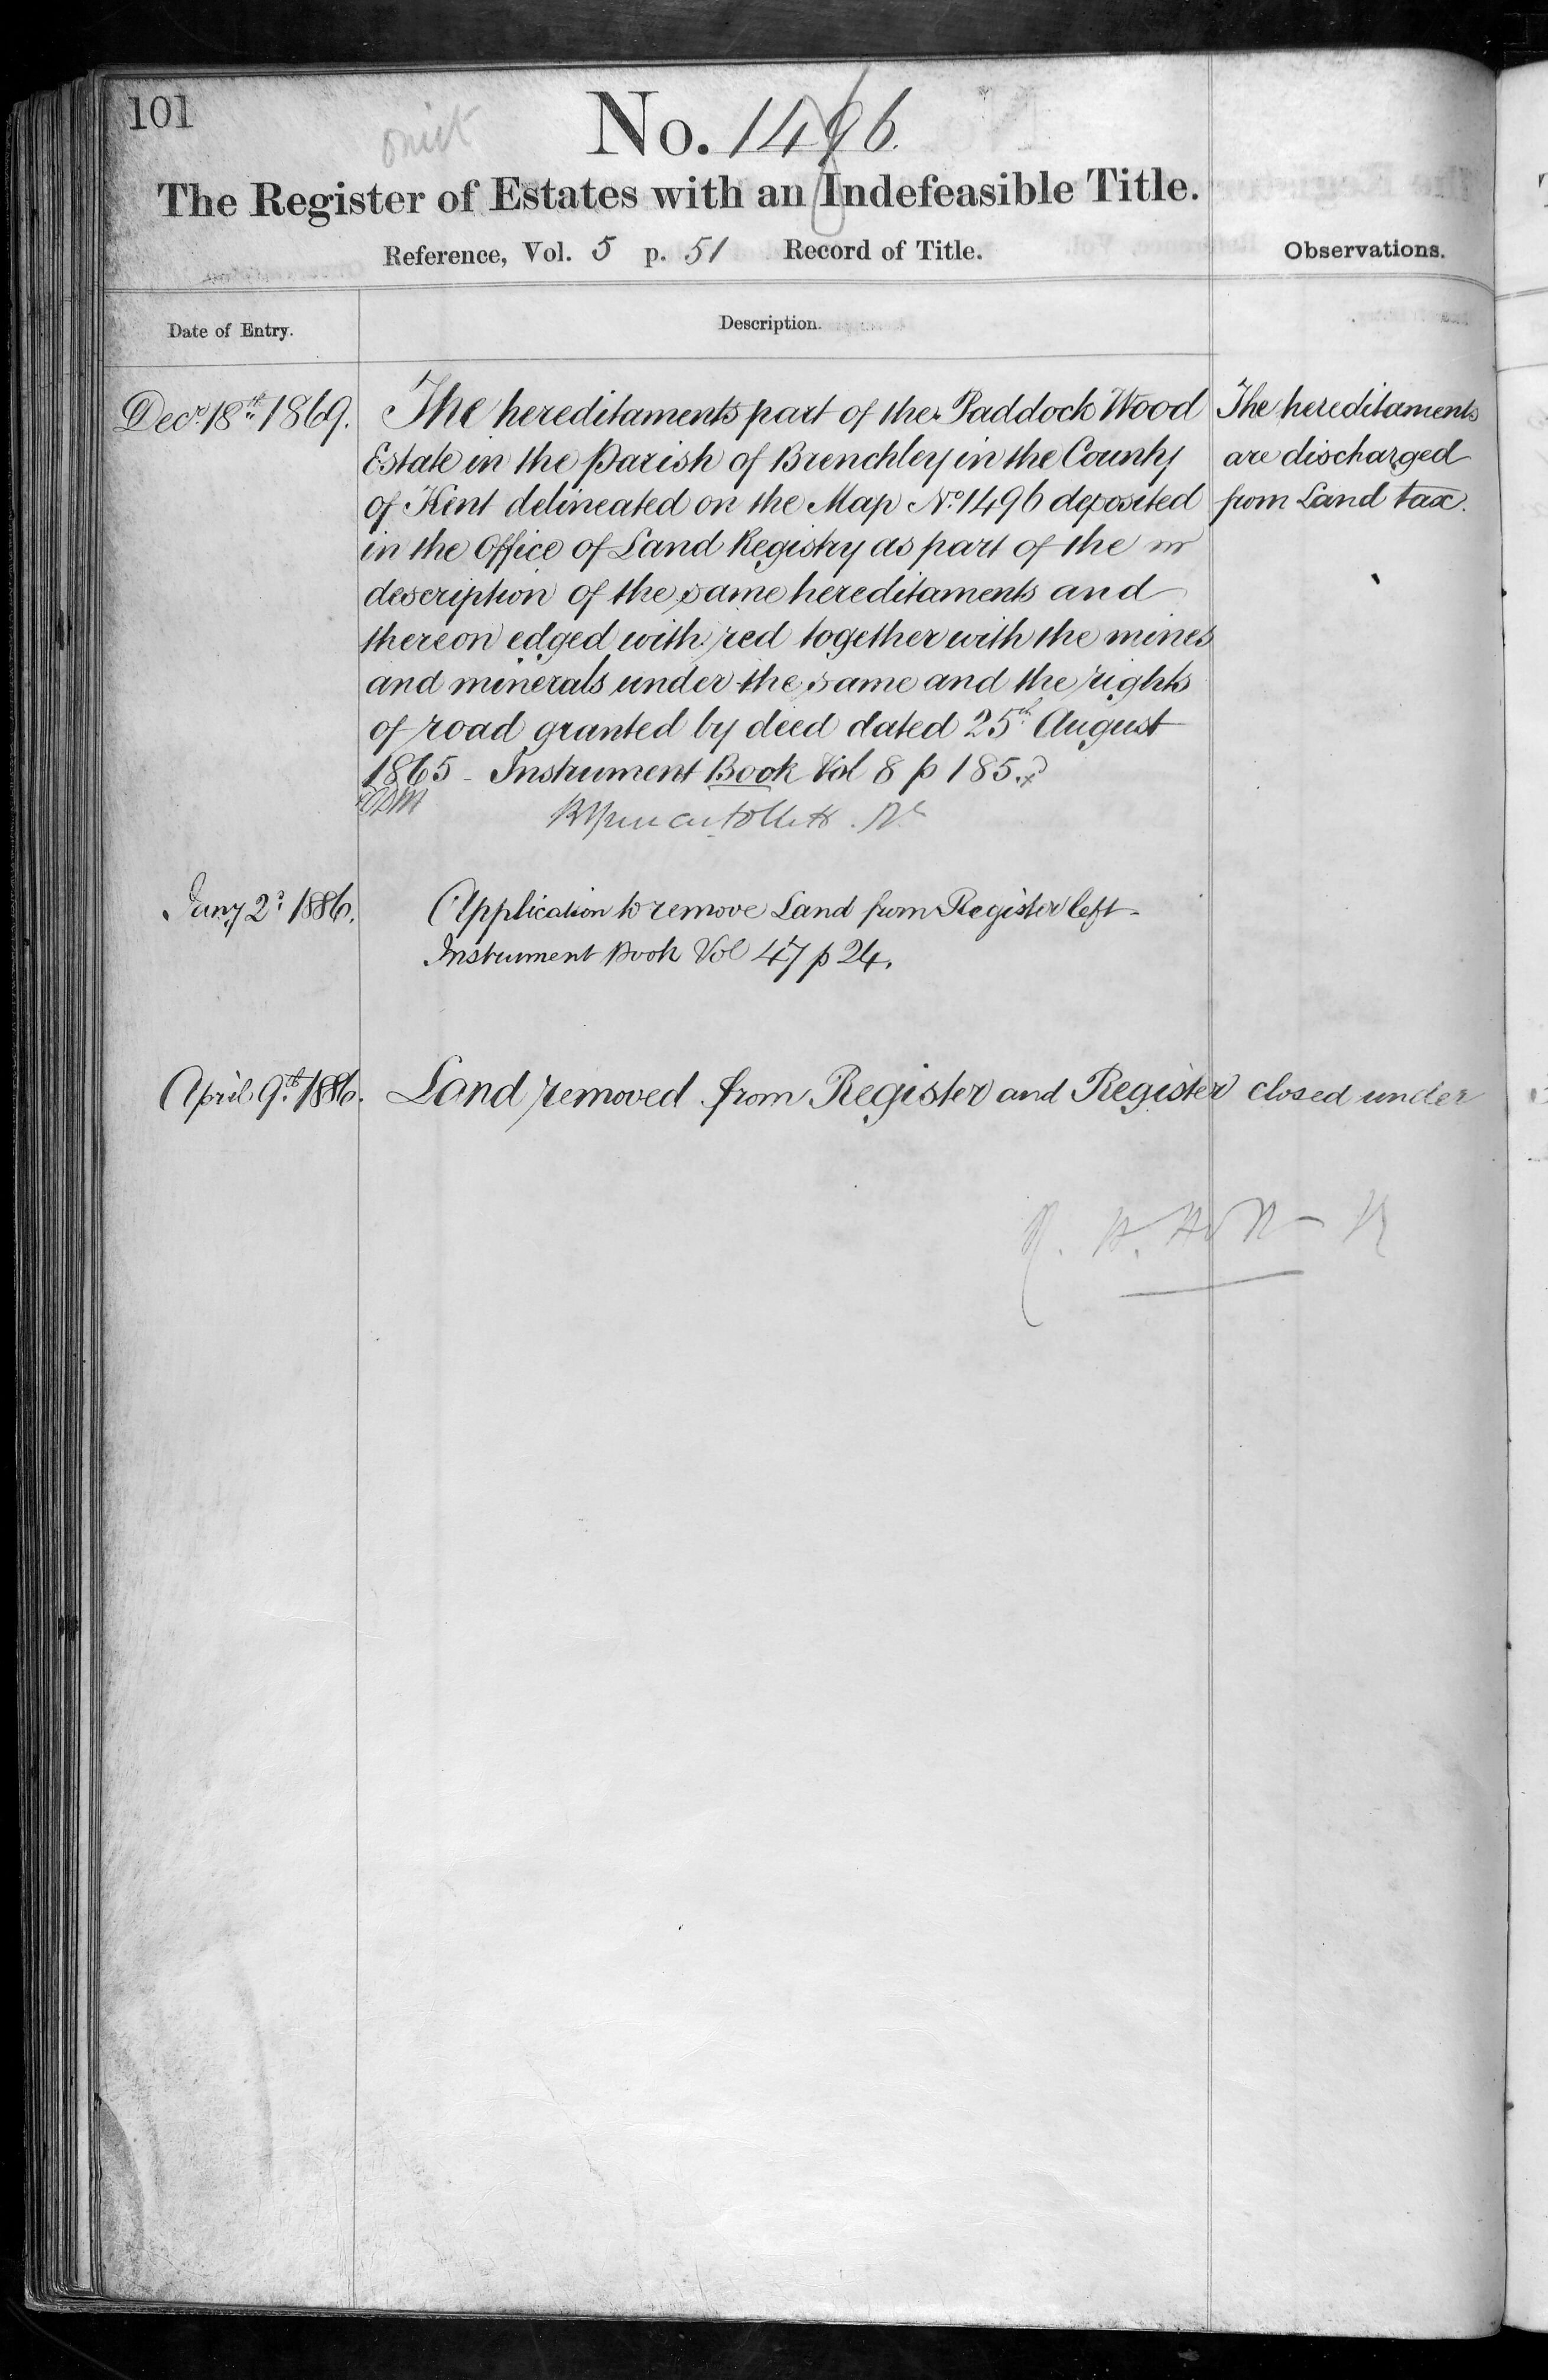 101
omit
No. 1496.
The Register of Estates with an Indefeasible Title.
Reference, Vol. 5 p. 51 Record of Title.
Observations.
Date of Entry.
Description.
Decr. 18th 1869.
The hereditaments part of the Paddock Wood
Estate in the Parish of Brenchley in the County
of Kent delineated on the Map No. 1496 deposited
in the Office of Land Registry as part of the
description of the same hereditaments and
thereon edged with red together with the mines
and minerals under the same and the rights
of road granted by deed dated 25th August
1865 - Instrument Book Vol 8 p 185.
The hereditaments
are discharged
from Land tax.
Jany 2d 1886.
Application to remove Land from Register left
Instrument Book Vol 47 p 24.
April 9th 1886.
Land removed from Register and Register closed under